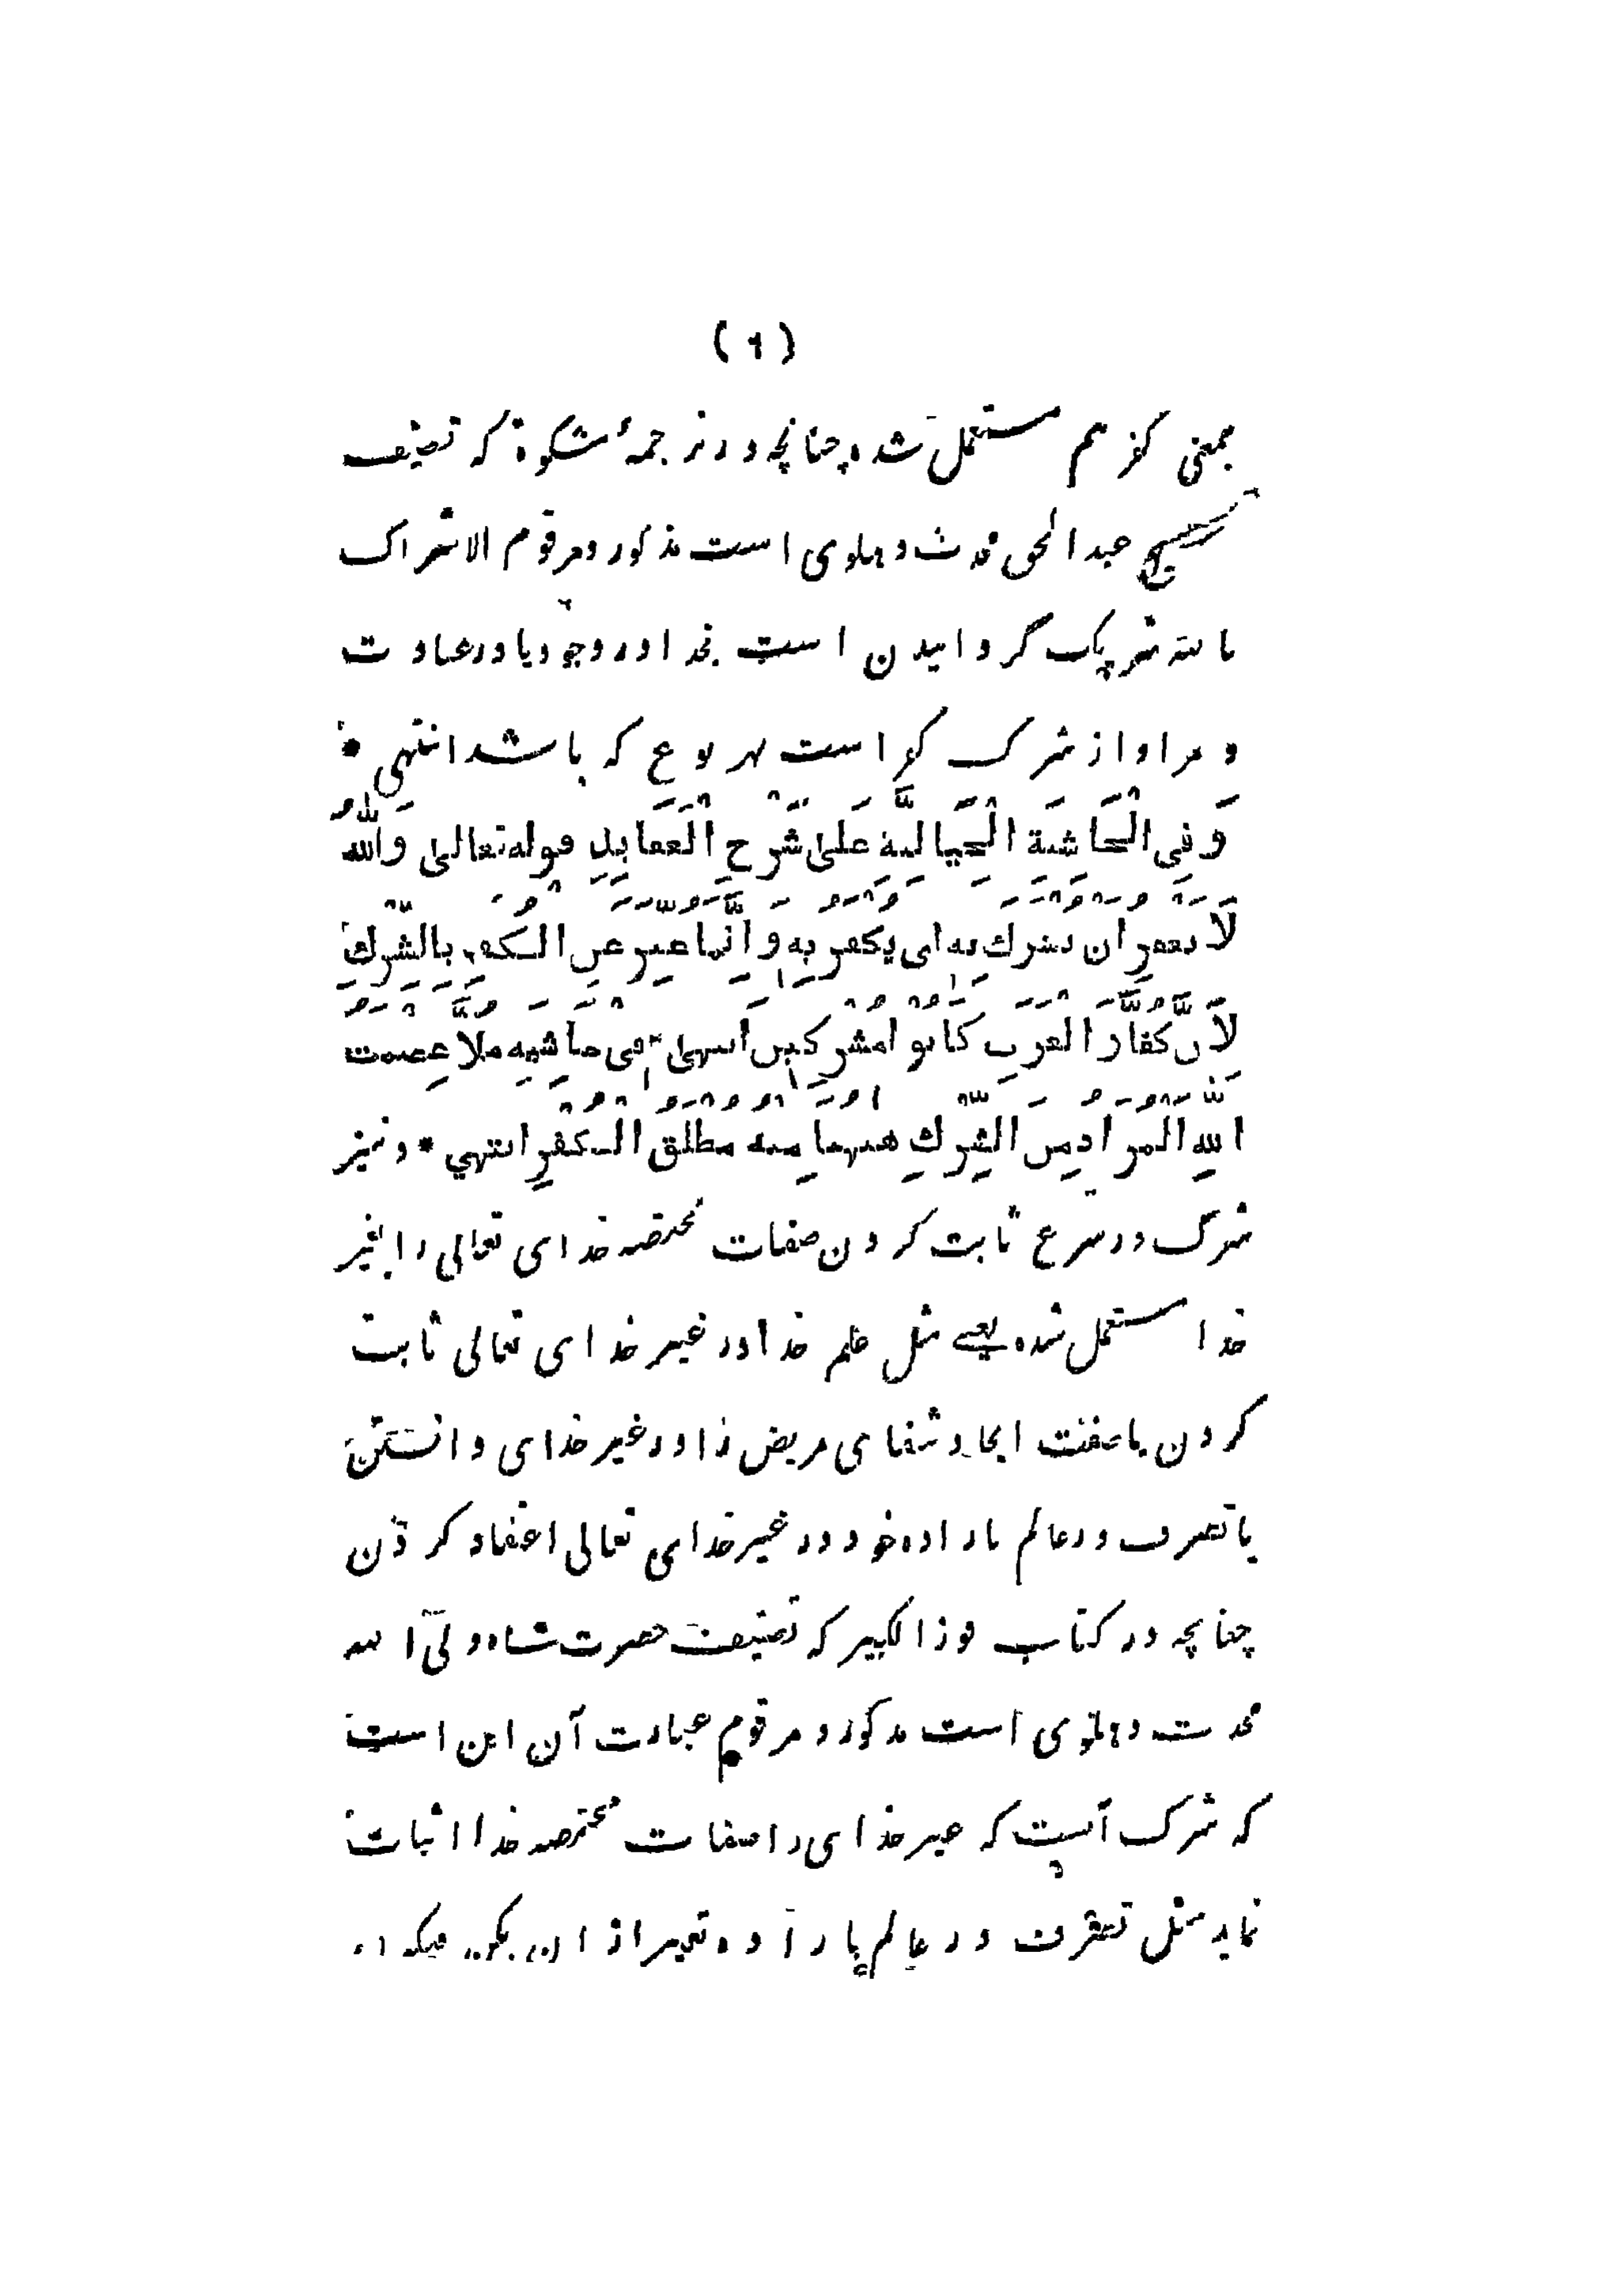 ( ٦ )
بمعنی کفر هم مستعمل شده چنانچه در ترجمهٔ مشکوة که تصنیف
شیخ عبد الحق محدث دهلوی است مذکور و مرقوم الاشراک
بالله شریک گردانیدن است بخدا در وجود یا در عبادت
و مراد از شرک کفر است بهر نوع که باشد انتهی *
وَفِي الْحَاشِيَةِ الْخَيَالِيَّةِ عَلَىٰ شَرْحِ الْعَقَايِدِ قوله تعالى وَاللّٰهُ
لَا يغفر ان يشرك به اى يكفر بِهِ وَإِنَّمَا عبر عن الكفر بِالشِّرْكِ
لِأَنَّ كفَّارَ الْعَرَبِ كَانُوا مُشْرِكِينَ انتهى * فى حاشيه ملا عصمت
اللهِ الْمُرَادُ مِنَ الشِّرْكِ ههنا منه مطلق الكفر انتهي * و نیز
شرک در شرع ثابت کردن صفات مختصه خدای تعالی را بغیر
خدا مستعمل شده یعنے مثل علم خدا در غیر خدای تعالی ثابت
کردن یا صفت ایجاد شفای مریض را در غیر خدای دانستن
یا تصرف در عالم باراده خود در غیر خدای تعالی اعتقاد کردن
چنانچه در کتاب فوز الکبیر که تصنیف حضرت شاه ولی الله
محدث دهلوی است مذکور و مرقوم عبارت آن این است
که شرک آنست که غیر خدای را صفات مختصه خدا اثبات
نماید مثل تصرف در عالم باراده تعبیر از ان بکن فیکون